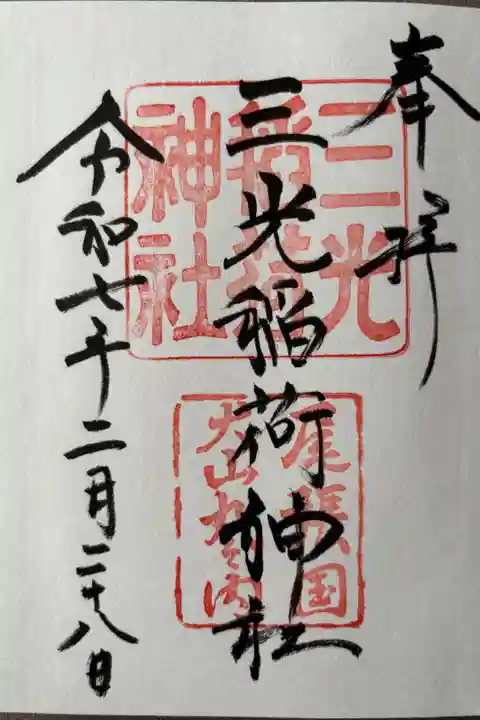 奉拝
三光稲荷神社
令和七年二月二十八日
三光
稲荷
神社
尾張国
犬山城之内